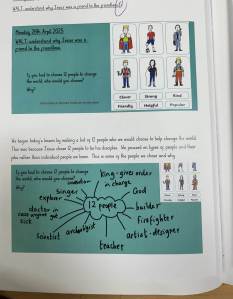 WALT: understand why Jesus was a friend to the friendless
Monday 28th April 2025
WALT: understand why Jesus was a
friend to the friendless.
If you had to choose 12 people to change
the world, who would you choose?
Why?
Clever
Strong
Kind
Friendly
Helpful
Popular
We began today's lesson by making a list of 12 people who we would choose to help change the world.
This was because Jesus chose 12 people to be his disciples. We focused on types of people and their
jobs rather than individual people we knew. This is some of the people we chose and why.
If you had to choose 12 people to change
the world, who would you choose?
Why?
king - gives order
in charge
God
singer
explorer
doctor in
case anyone gets
sick
12 people
builder
firefighter
artist - designer
scientist
teacher